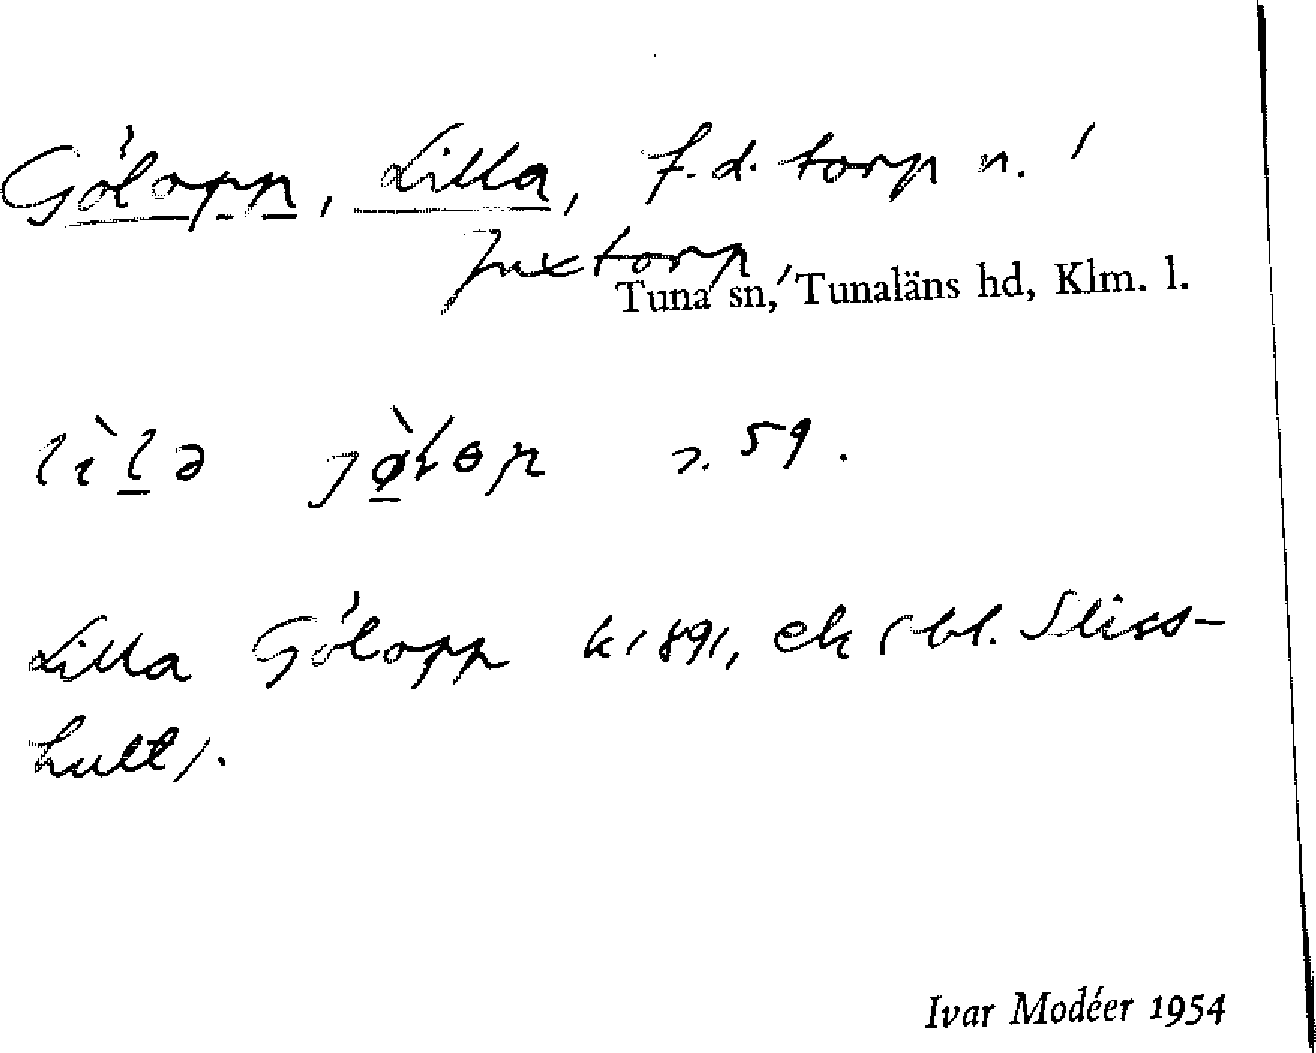 Gölopp, Lilla, f.d. torp n. /
Juxtorp, /
Tuna sn, Tunaläns hd, Klm. l.
s. 59.
Lilla Gölopp k 1891, ek (bl. Sliss-
hult).
Ivar Modéer 1954